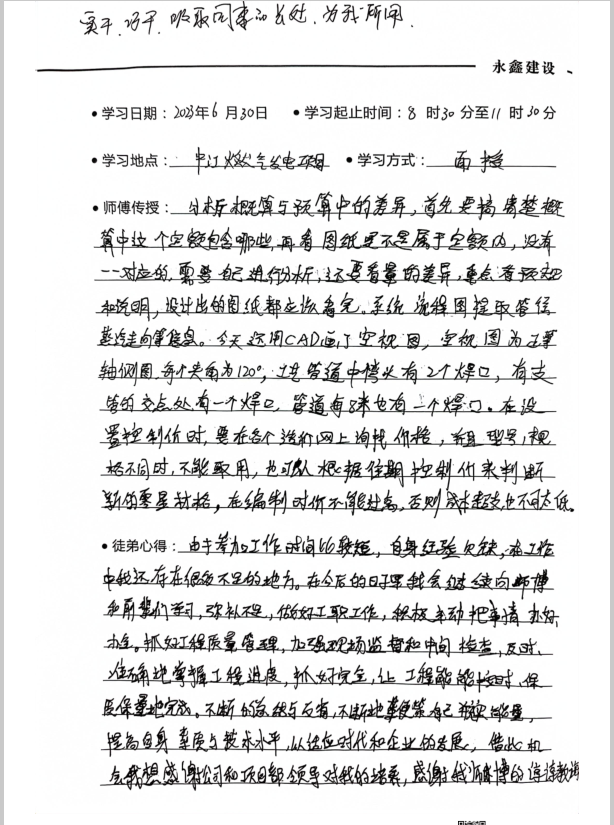 实干、巧干,吸取同事的长处,为我所用.
永鑫建设
• 学习日期: 2023年6月30日 • 学习起止时间: 8 时30分至11 时30分
• 学习地点: 中江燃气发电项目 • 学习方式: 面授
• 师傅传授: 分析概算与预算中的差异,首先要搞清楚概
算中这个定额包含哪些,再看图纸是不是属于定额内,没有
一一对应的,需要自己进行分析,还要看量的差异,重点看
和说明,设计出的图纸都应该看完.系统流程图提取管径
蒸汽走向等信息。今天还用CAD画了空视图,空视图为正等
轴侧图,每个夹角为120°,主管道中情头有2个焊口,有支
管的交点处有一个焊口,管道每8米也有一个焊口。在设
置控制价时,要在各个造价网上询找价格,并且型号,规
格不同时,不能取用,也可以根据往期控制价来判断
新的零星材格,在编制对价不能过高,否则成本超支也不可太低.
• 徒弟心得: 由于参加工作时间比较短,自身经验欠缺,在工作
中我还存在很多不足的地方。在今后的日子里我会继续向师傅
和前辈们学习,弥补不足,做好本职工作,积极主动把事情办好
办全。抓好工程质量管理,加强现场监督和中间检查,及时、
准确地掌握工程进度,抓好完全,让工程能够按时、保
质保量地完成。不断的总结与反省,不断地鞭策自己 能量,
提高自身素质与技术水平,以适应时代和企业的发展,借此机
会我想感谢公司和项目部领导对我的培养,感谢我师傅的谆谆教诲